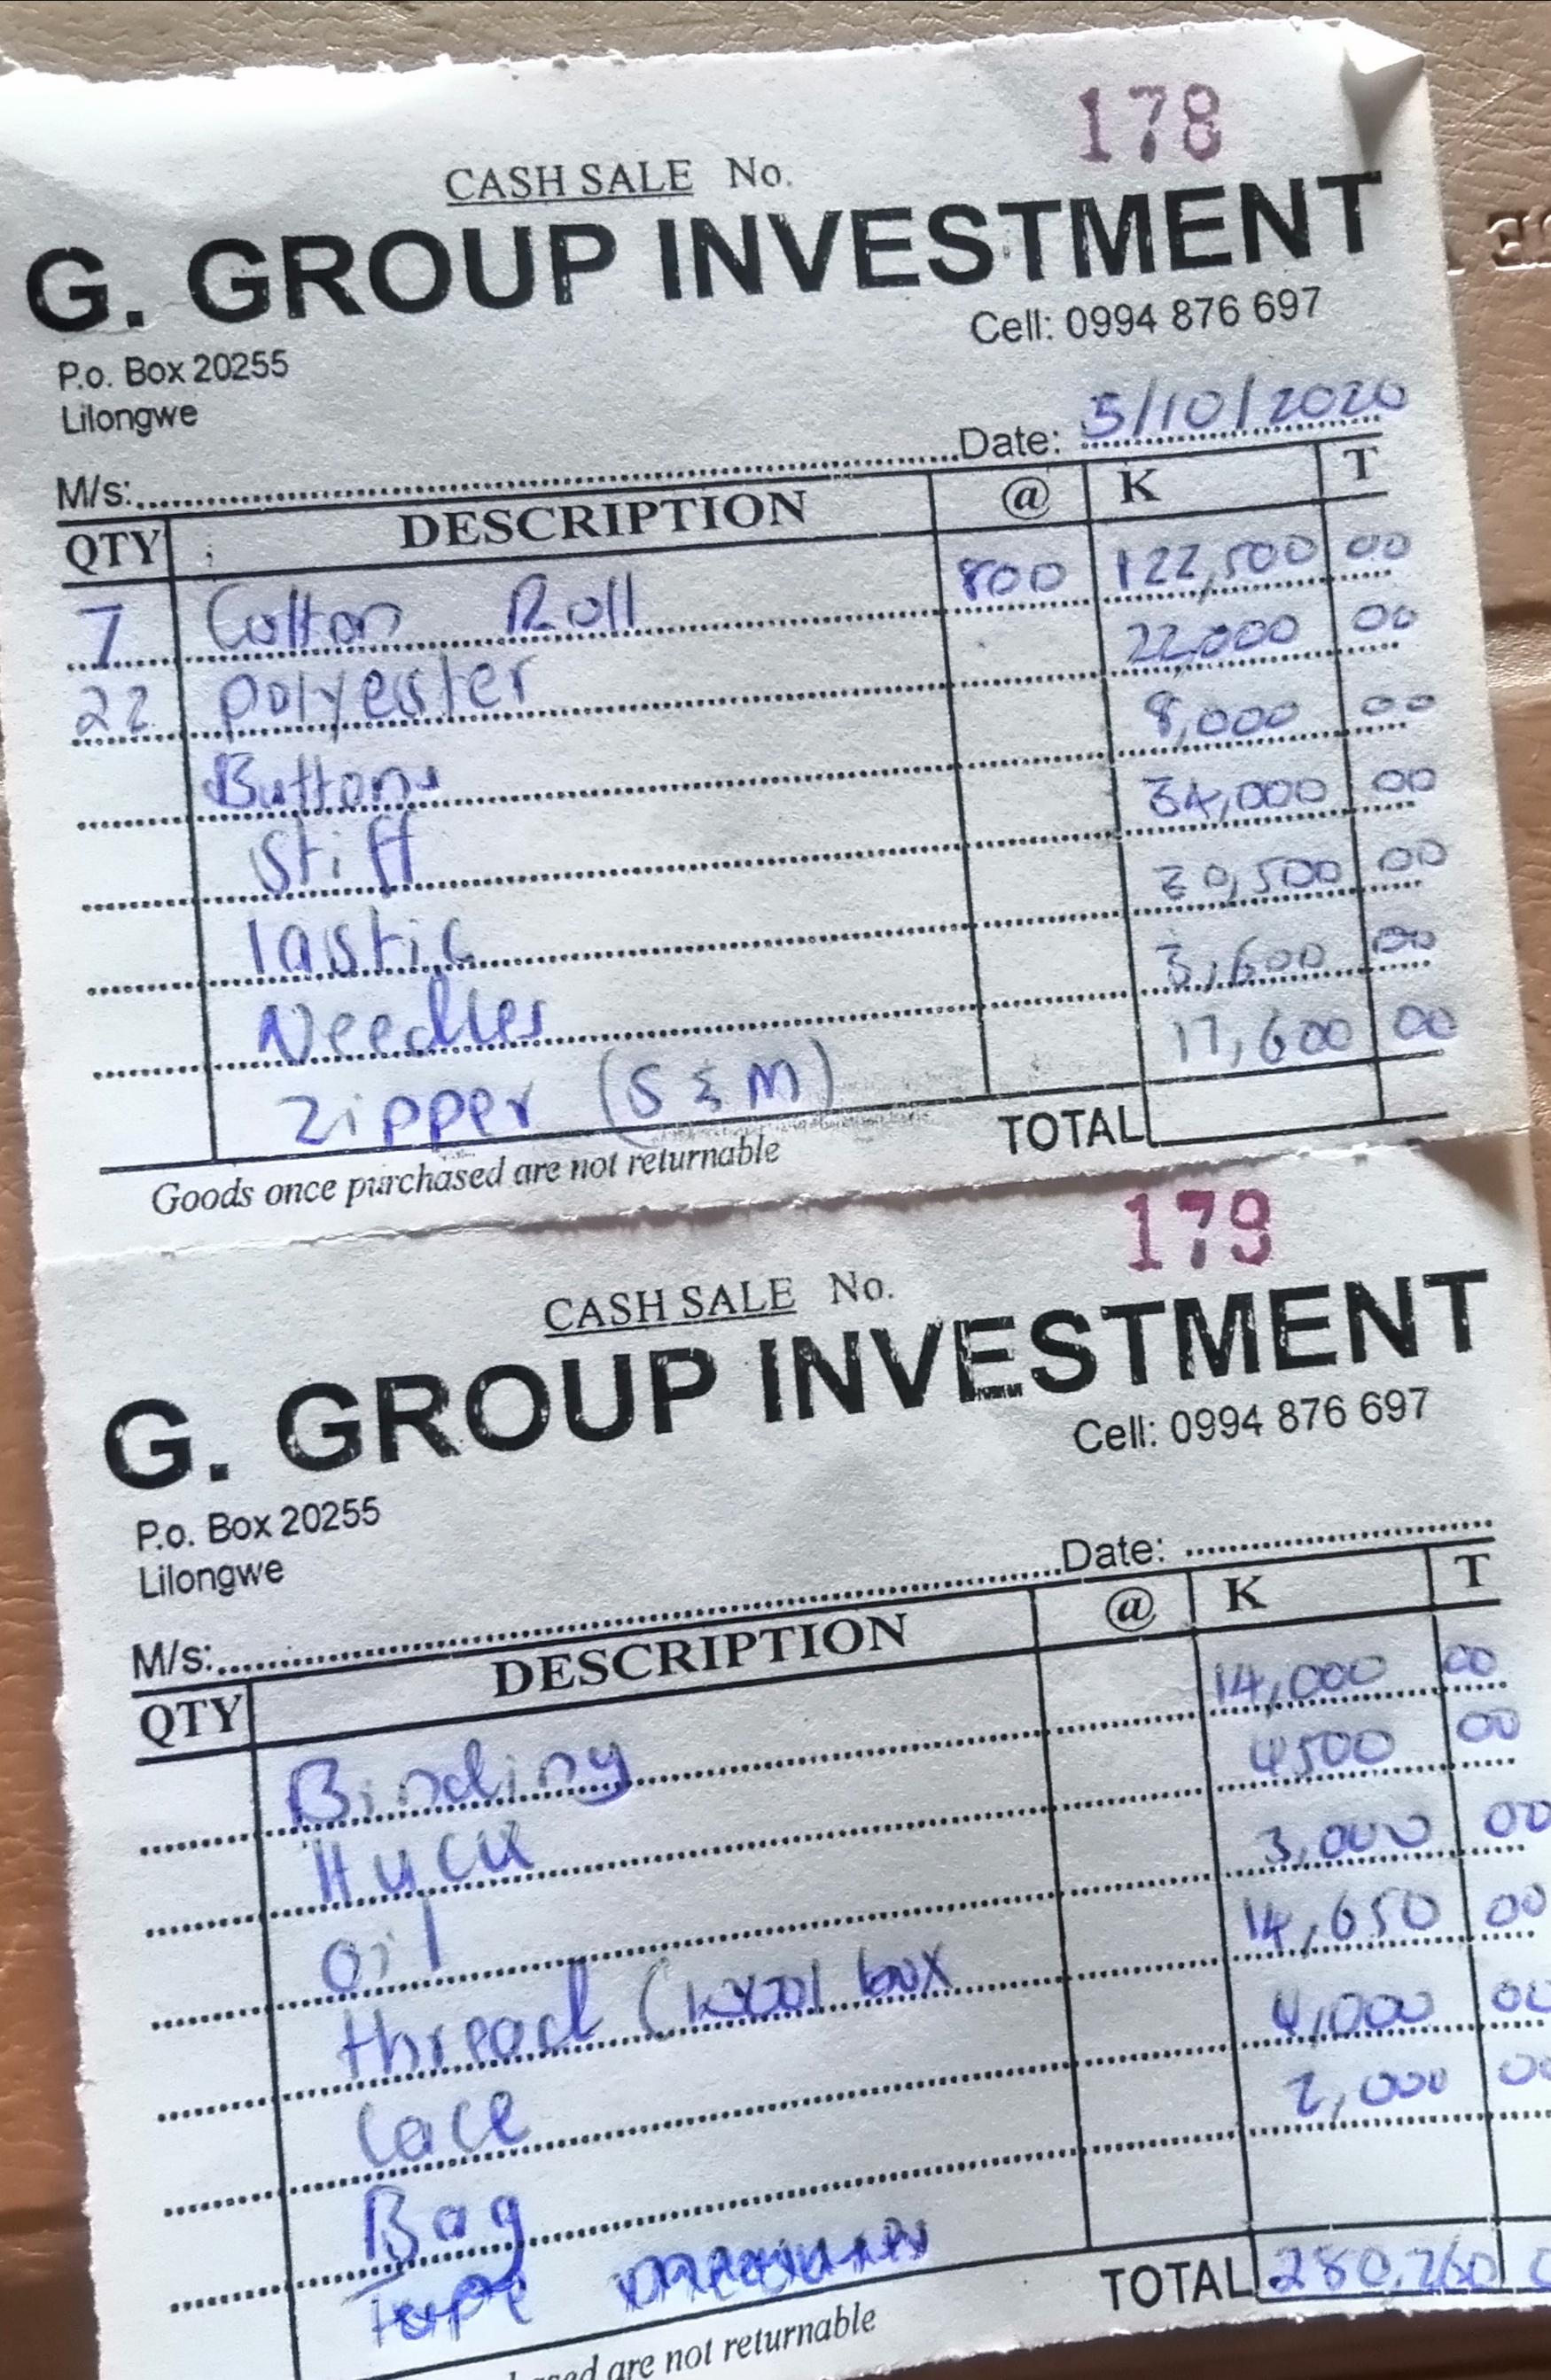 178
CASH SALE No.
G. GROUP INVESTMENT
Cell: 0994 876 697
P.o. Box 20255
Lilongwe
M/s: Date: 5/10/2020
QTY DESCRIPTION @ K T
7 Cotton Roll 800 122,500 00
22 polyester 22,000 00
Buttons 8,000 00
Stiff 34,000 00
lastic 30,500 00
Needles 3,600 00
Zipper (S & M) 17,600 00
TOTAL
Goods once purchased are not returnable
179
CASH SALE No.
G. GROUP INVESTMENT
Cell: 0994 876 697
P.o. Box 20255
Lilongwe
M/s: Date:
QTY DESCRIPTION @ K T
Binding 14,000 00
4500 00
Oil 3,000 00
thread ( box 14,650 00
Lace 4,000 00
Bag 2,000 00
Tape
TOTAL 280,260
are not returnable